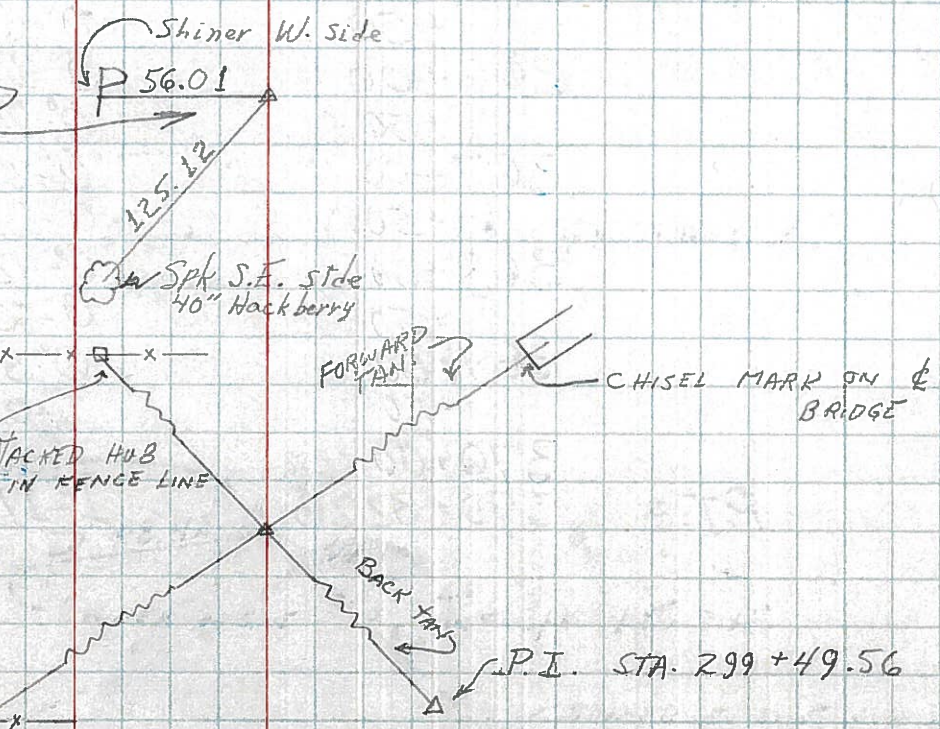 Shiner W. Side
P 56.01
125.12
Spk S.E. side
40" Hackberry
x x x
FORWARD
TAN.
CHISEL MARK ON ℄
BRIDGE
TACKED HUB
IN FENCE LINE
BACK TAN
P.I. STA. 299 + 49.56
x